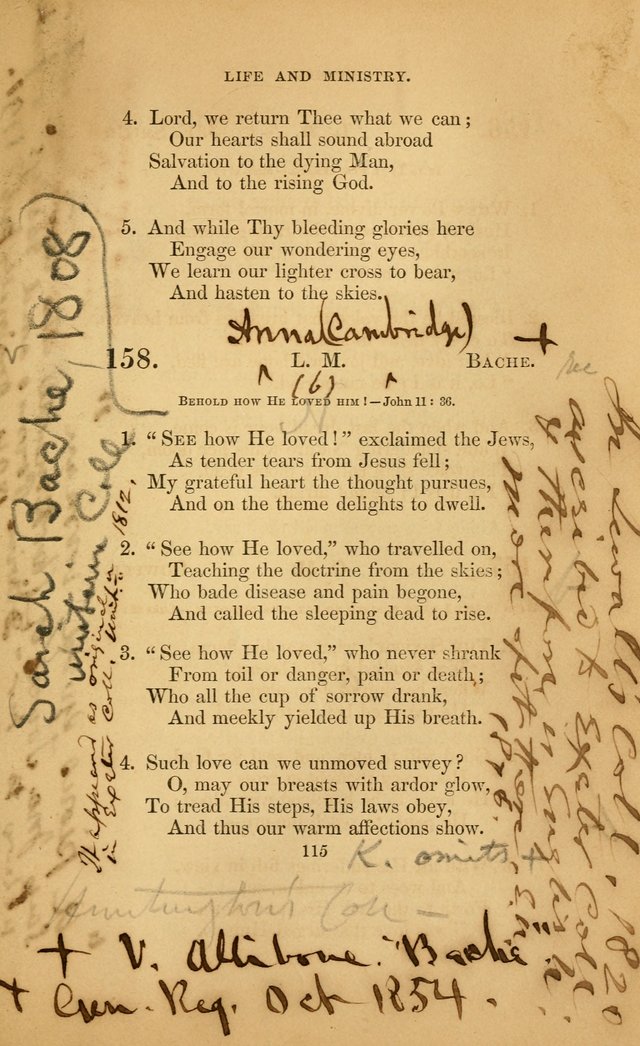 LIFE AND MINISTRY.
4. Lord, we return Thee what we can;
Our hearts shall sound abroad
Salvation to the dying Man,
And to the rising God.
5. And while Thy bleeding glories here
Engage our wondering eyes,
We learn our lighter cross to bear,
And hasten to the skies.
Anna (Cambridge)
158. L. M. BACHE. +
(6)
BEHOLD HOW HE LOVED HIM!—John 11: 36.
1. “SEE how He loved!” exclaimed the Jews,
As tender tears from Jesus fell;
My grateful heart the thought pursues,
And on the theme delights to dwell.
2. “See how He loved,” who travelled on,
Teaching the doctrine from the skies;
Who bade disease and pain begone,
And called the sleeping dead to rise.
3. “See how He loved,” who never shrank
From toil or danger, pain or death;
Who all the cup of sorrow drank,
And meekly yielded up His breath.
4. Such love can we unmoved survey?
O, may our breasts with ardor glow,
To tread His steps, His laws obey,
And thus our warm affections show.
115
K. omits +
Huntington's Coll —
+ V. Allibone. "Bache".
+ Gen. Reg. Oct 1854.
Sarah Bache, 1808
Coll
It appeared as original
in Exeter Coll. Unit'n 1812.
In Sewall's Coll. 1820
ascribed to Exeter Coll.
& therefore is English.